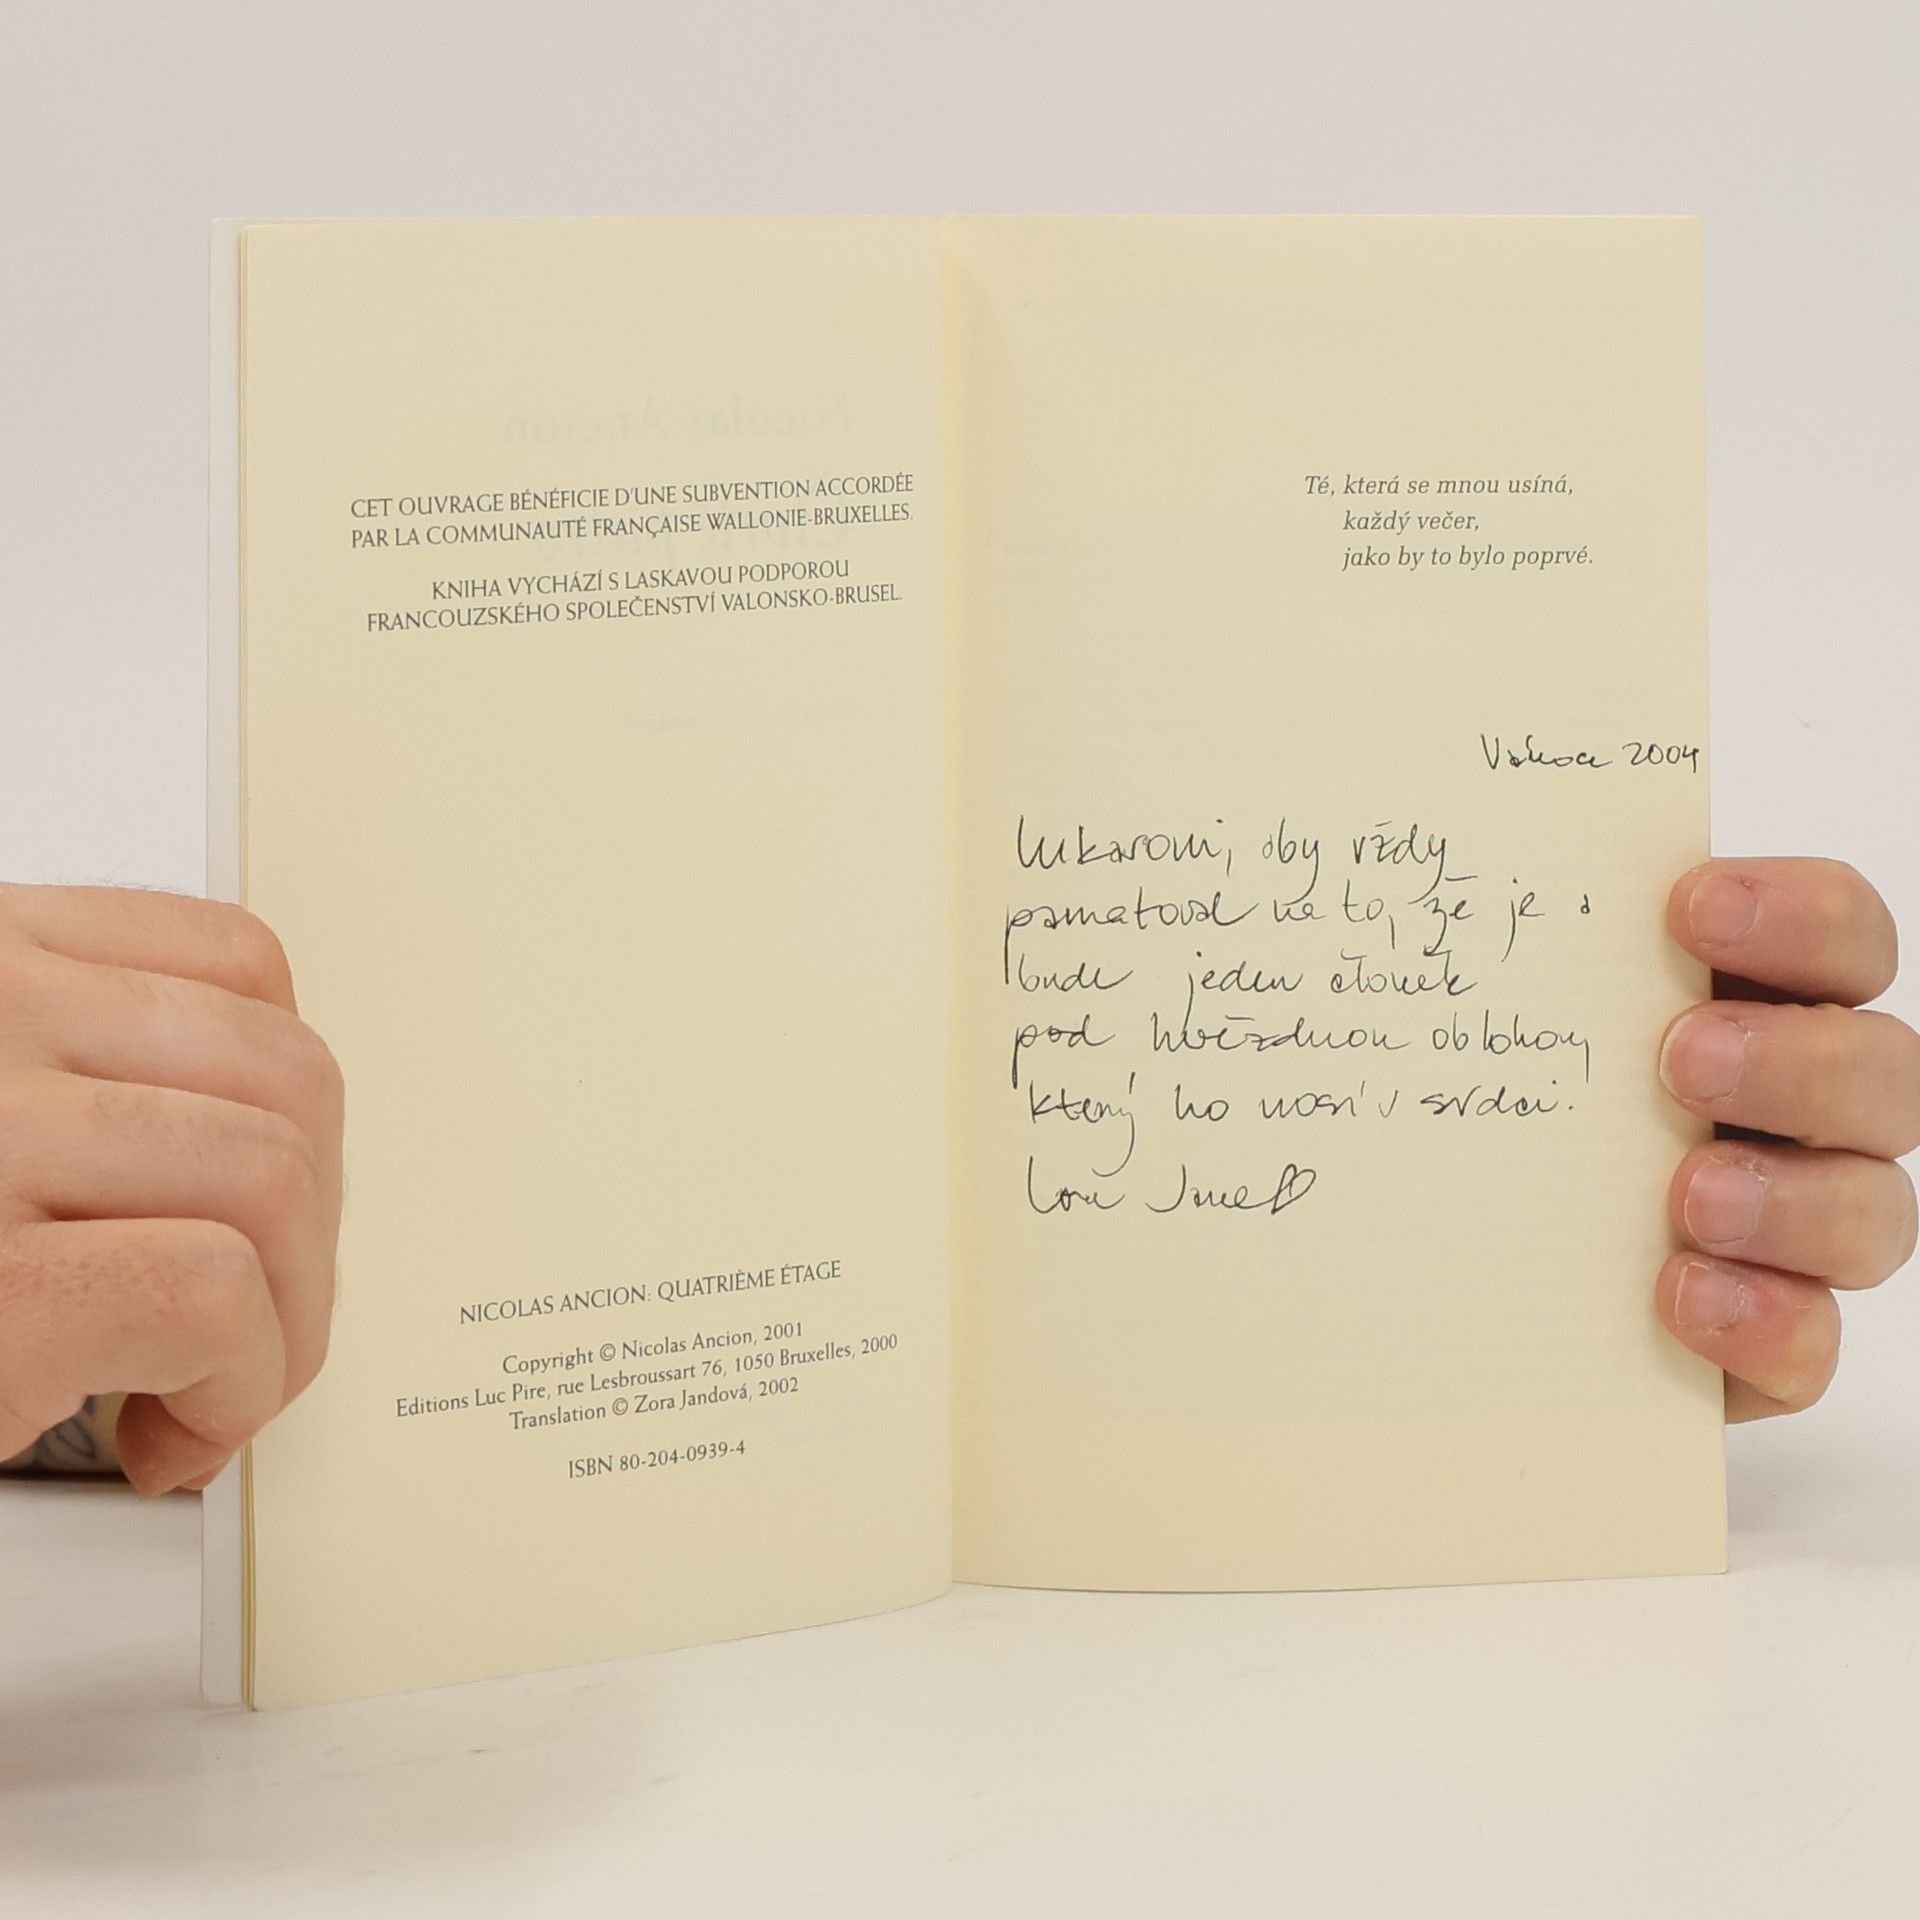 CET OUVRAGE BÉNÉFICIE D'UNE SUBVENTION ACCORDÉE
PAR LA COMMUNAUTÉ FRANÇAISE WALLONIE-BRUXELLES.
KNIHA VYCHÁZÍ S LASKAVOU PODPOROU
FRANCOUZSKÉHO SPOLEČENSTVÍ VALONSKO-BRUSEL.
NICOLAS ANCION: QUATRIÈME ÉTAGE
Copyright © Nicolas Ancion, 2001
Editions Luc Pire, rue Lesbroussart 76, 1050 Bruxelles, 2000
Translation © Zora Jandová, 2002
ISBN 80-204-0939-4
Té, která se mnou usíná,
každý večer,
jako by to bylo poprvé.
Vánoce 2004
Lukášovi, aby vždy
pamatoval na to, že je a
bude jeden člověk
pod hvězdnou oblohou
který ho nosí v srdci.